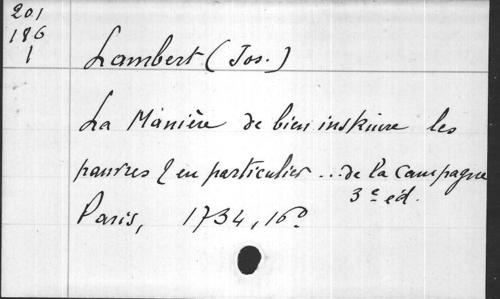 201
186
1
Lambert (Jos.)
La Manière de bien instruire les
pauvres & en particulier ... de la campagne
3e éd.
Paris, 1734, 16º